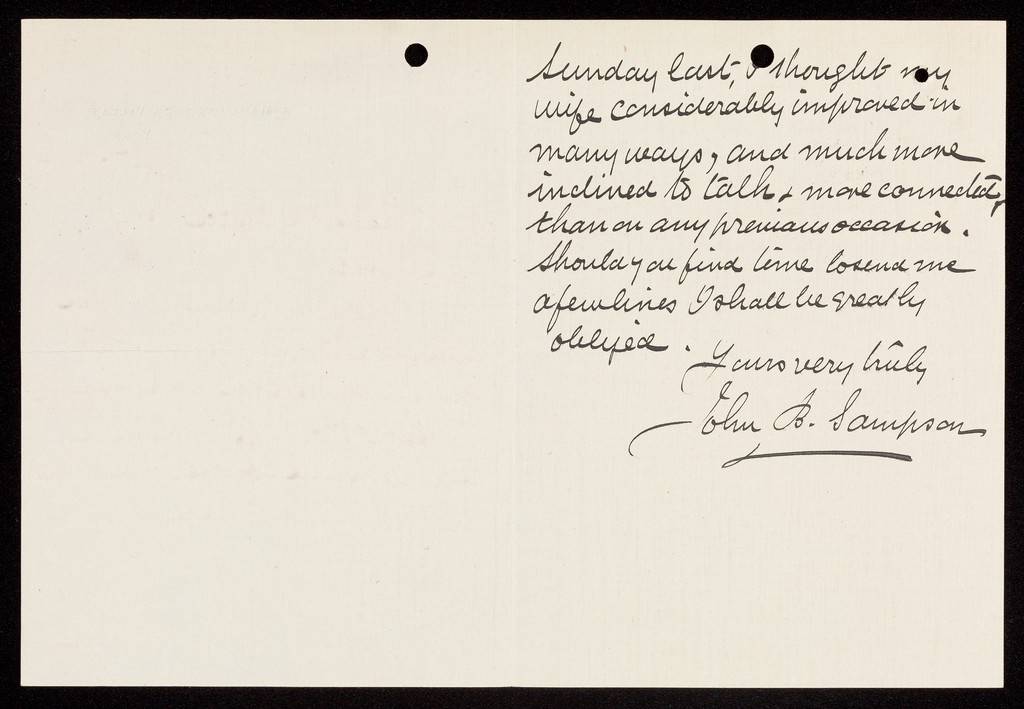 Sunday last, I thought my
wife considerably improved in
many ways, and much more
inclined to talk & more connected,
than on any previous occasion.
Should you find time to send me
a few lines I shall be greatly
obliged.
Yours very truly
John B. Sampson